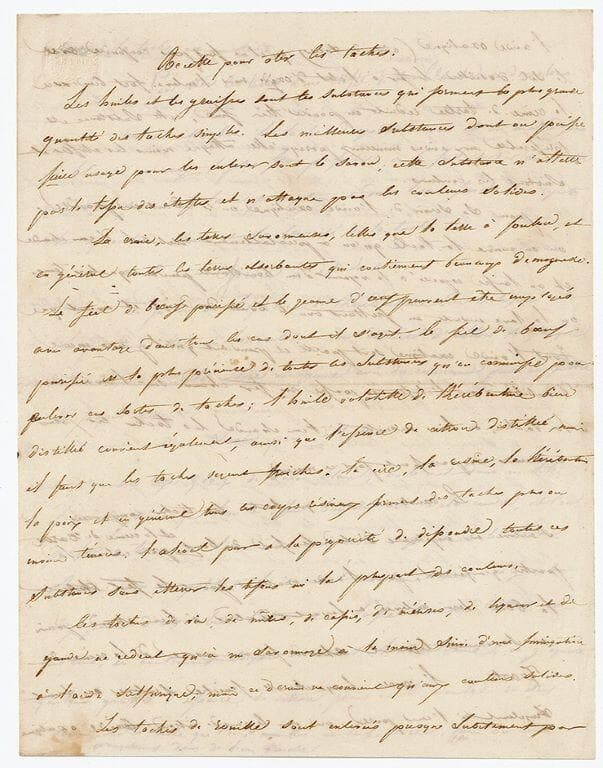 Recette pour oter les taches.
Les huiles et les graisses sont les substances qui forment la plus grande
quantité des taches simples. Les meilleures substances dont on puisse
faire usage pour les enlever sont le savon, cette substance n'altère
pas le tissu des étoffes et n'attaque pas les couleurs solides.
La craie, les terres savonneuses, telles que la terre à foulon et
en général toutes les terres absorbantes qui contiennent beaucoup de magnésie.
Le fiel de bœuf purifié et le jeaune d'œuf peuvent être employés
avec avantage dans tous les cas dont il s'agit. le fiel de bœuf
purifié est la plus précieuse de toutes les substances qu'on connoisse pour
enlever ces sortes de taches; l'huile volatille de thérébentine bien
distillée convient également, ainsi que l'essence de citron distillée, mais
il faut que les taches soyent fraiches. la cire, la résine, la thérébentine
la poix et en général tous les corps résineux forment des taches plus ou
moins tenaces, l'alcool pur a la propriété de dissoudre toutes ces
substances sans altérer les tissus ni la pluspart des couleurs.
Les taches de vin, de mûres, de cassis, de mérises, de liqueurs et de
gaude ne cèdent qu'à un savonnage à la main suivi d'une fumigation
à l'acide sulfurique, mais ce dernier ne convient qu'aux couleurs solides.
Les taches de rouille sont enlevées presque subitement par